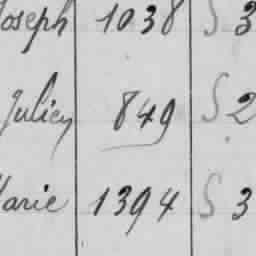 Joseph 1038 S 3
Julien 849 S 2
Marie 1394 S 3